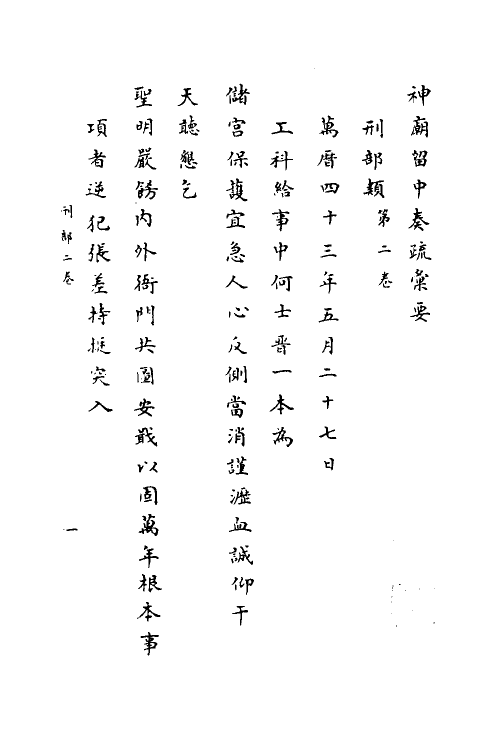 神廟留中奏疏彙要
刑部類第二卷
萬曆四十三年五月二十七日
工科給事中何士晋一本為
儲宮保護宜急人心反側當消謹瀝血誠仰干
天聽懇乞
聖明嚴飭内外衙門共圖安戢以固萬年根本事
項者逆犯張差持挺突入
刑部二卷
一